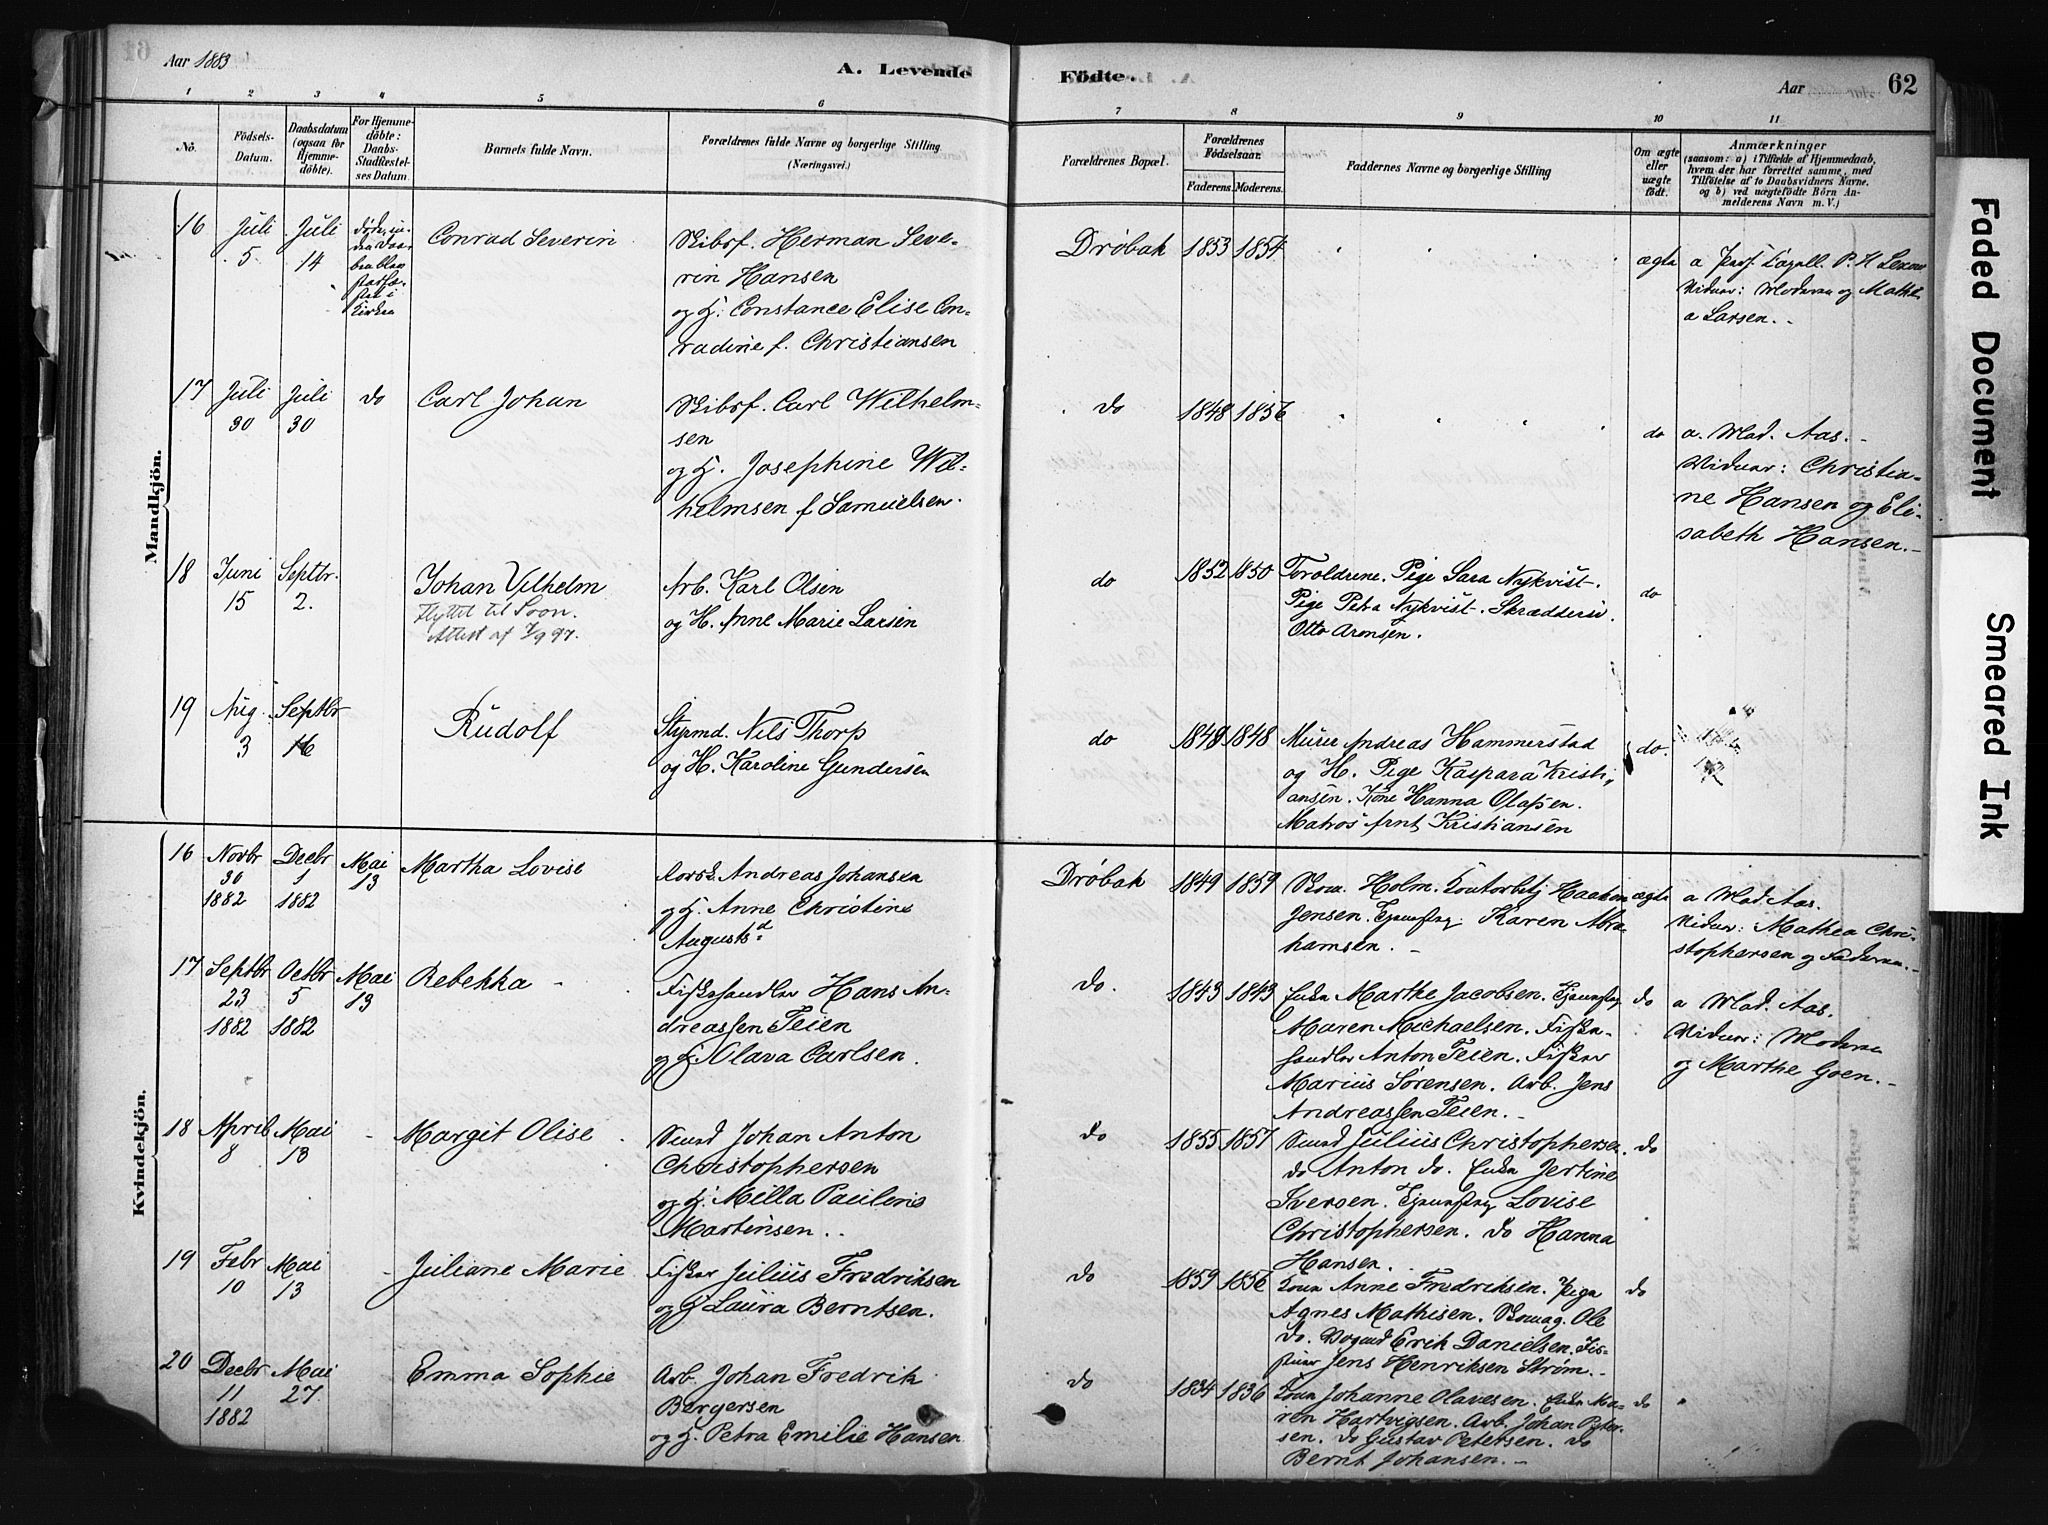 Aar 1883
A. Levende
Fødte.
Aar
62
1 2 3 4 5 6 7 8 9 10 11
No.
Fødsels-Datum.
Daabsdatum (ogsaa for Hjemmedøbte).
For Hjemmedøbte: Daabs-Stadfæstelses Datum.
Barnets fulde Navn.
Forældrenes fulde Navne og borgerlige Stilling (Næringsvei.)
Forældrenes Bopæl.
Forældrenes Fødselsaar.
Faderens. Moderens.
Faddernes Navne og borgerlige Stilling
Om ægte eller uægte født.
Anmærkninger
(saasom: a) i Tilfælde af Hjemmedaab,
hvem der har forrettet samme, med
Tilføielse af to Daabsvidners Navne.
og b) ved uægtefødte Børn An-
melderens Navn m. V.)
Mandkjön.
16 Juli 5 Juli 14 Conrad Severin
Skibsf. Herman Seve-
rin Hansen
og H. Constance Elise Con-
radine f. Christiansen
Drøbak 1853 1854 ægte
Vidner: Moderen og
a Larsen.
17 Juli 30 Juli 30 do Carl Johan
Skibsf. Carl Wilhelm-
sen
og H. Josephine Wil-
helmsen f Samuelsen.
do 1848 1856 do
a. Mad. Aas.
Vidner: Christia-
ne Hansen og Eli-
sabeth Hansen.
18 Juni 15 Septbr. 2. Johan Vilhelm
Flyttet til Soon.
Attest af
Arb. Karl Olsen
og H. Anne Marie Larsen
do 1852 1850
Foroldrene. Pige Sara Nykvist.
Pige Petra Nykvist. Skrædders.
Otto Aronsen.
do
19 Aug. 3 Septbr 16 Rudolf
Styrmd. Nils Thorp
og H. Karoline Gundersen
do 1848 1848
Murer Andreas Hammerstad
og H. Pige Kaspara Kristi-
ansen. Kone Hanna Olafsen.
Matros Arnt Kristiansen
do.
Kvindekjön.
16 Novbr 30 1882 Decbr 1 1882 Mai 13 Martha Lovise
Andreas Johansen
og H. Anne Christine
Augustsd
Drøbak 1849 1859
Holm. Kontorbetj Haakon
Jensen. Karen Abra-
hamsen.
ægte
a Mad Aas.
Vidner: Mathea Chri-
stophersen og Faderen.
17 Septbr 23 1882 Octbr 5 1882 Mai 13 Rebekka
Fiskehandler Hans An-
dreassen Teien
og H Klava Carlsen.
do. 1843 1843
Enke Marthe Jacobsen.
Maren Michaelsen. Fiske-
handler Anton Teien. Fisker
Marius Sørensen. Arb. Jens
Andreassen Teien.
do
a Mad. Aas.
Vidner: Moderen
og Marthe Goen.
18 April 8 Mai 13 Margit Olise
Johan Anton
Christophersen
og H. Milla Pauline
Martinsen.
do 1855 1857
Julius Christophersen.
do Anton do. Enke Jertine
Iversen. Lovise
Christophersen. do Hanna
Hansen.
do
19 Febr 10 Mai 13 Juliane Marie
Fisker Julius Fredriksen
og H Laura Berntsen.
do 1859 1856
Kone Anne Fredriksen. Pige
Agnes Mathisen. Skomag. Ole
do. Erik Danielsen. Fis-
Jens Henriksen Strøm.
do
20 Decbr 11 1882 Mai 27 Emma Sophie
Arb. Johan Fredrik
Bergersen
og H. Petra Emilie Hansen
do 1834 1836
Kone Johanne Olavesen. Enke Ma-
ren Hartvigsen. Arb. Johan Peter-
sen. do Gustav Petersen. do
Bernt Johansen.
do
Faded Document
Smeared Ink